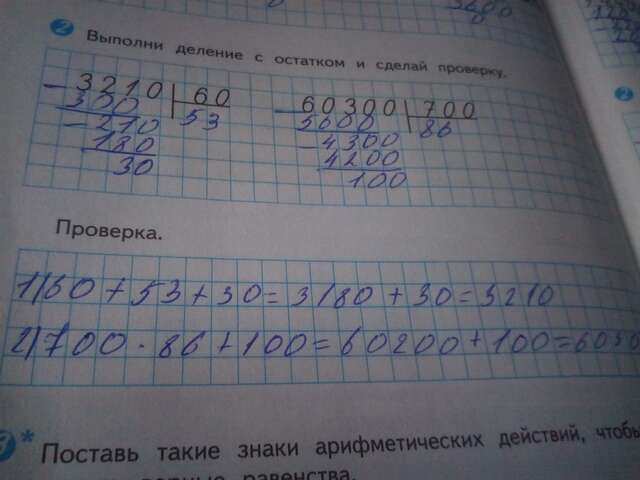 2 Выполни деление с остатком и сделай проверку.
3210 | 60
- 300 | 53
- 210
180
30
60300 | 700
- 5600 | 86
- 4300
4200
100
Проверка.
1) 60 + 53 + 30 = 3180 + 30 = 3210
2) 700 · 86 + 100 = 60200 + 100 = 6030
* Поставь такие знаки арифметических действий, чтобы
равенства.